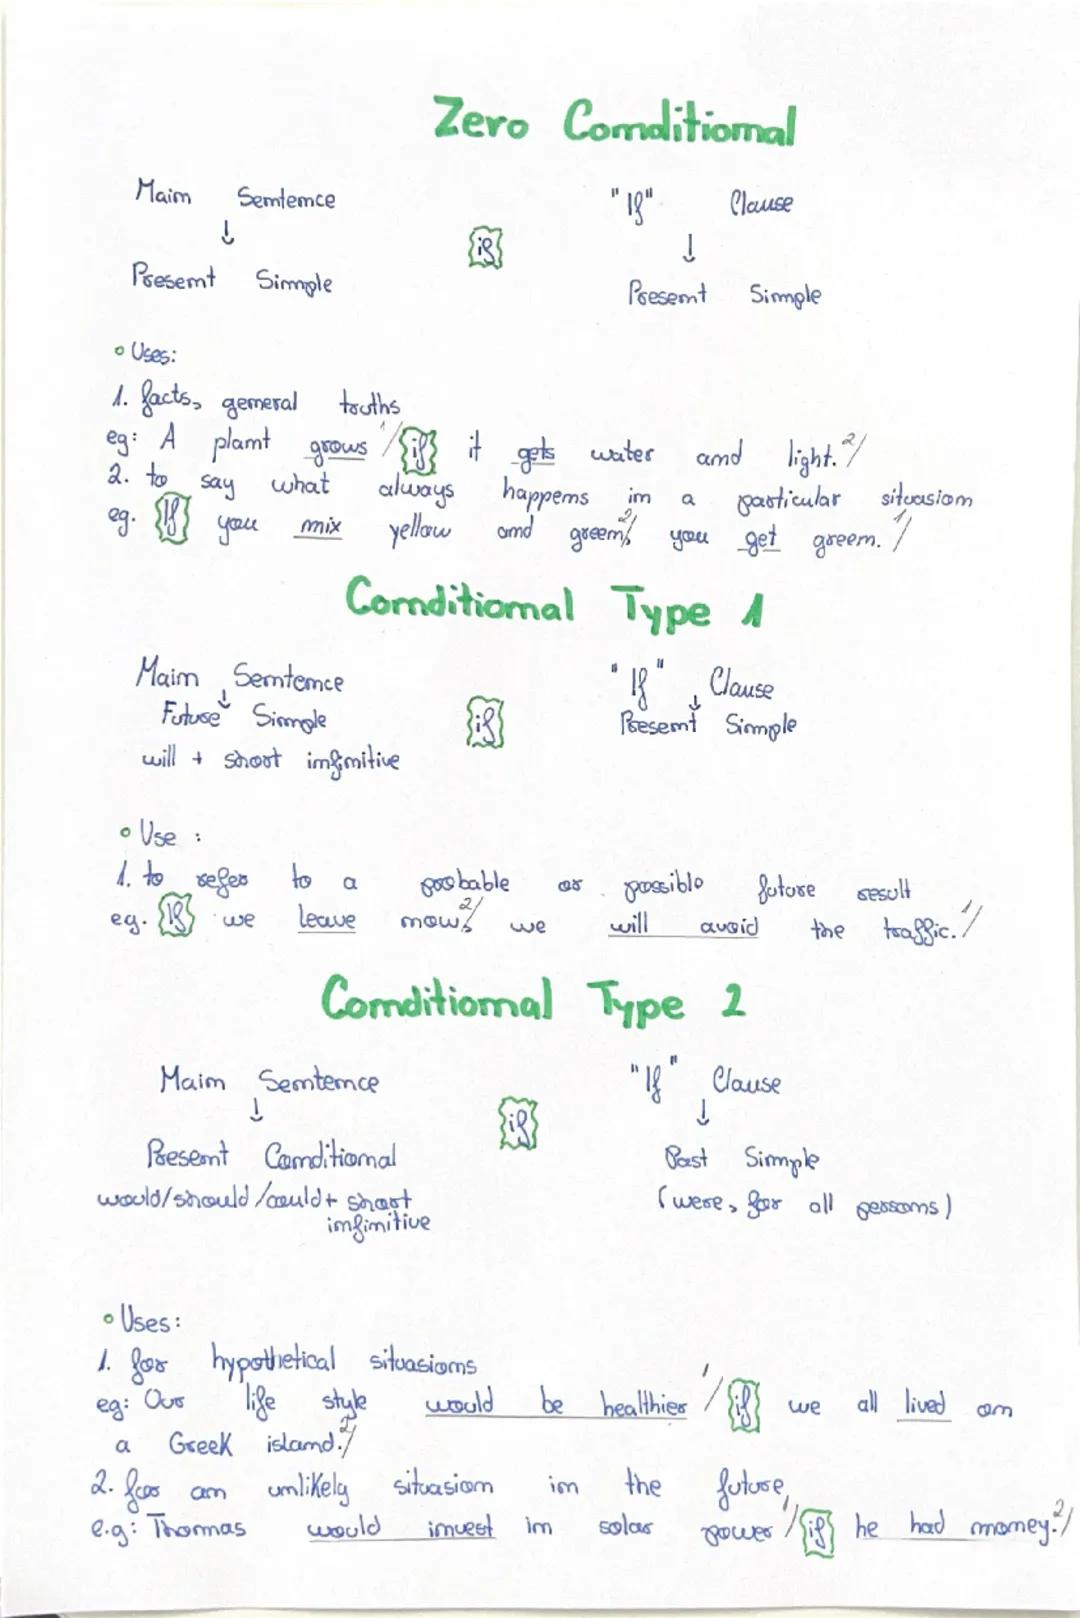 Zero Conditional
Main Sentence "If" Clause
↓ if ↓
Present Simple Present Simple
• Uses:
1. facts, general truths
eg: A plant grows 1/ if it gets water and light. 2/
2. to say what always happens in a particular situasion
eg. If you mix yellow and green, 2/ you get green. 1/
Conditional Type 1
Main Sentence "If" Clause
↓ if ↓
Future Simple Present Simple
will + short infinitive
• Use :
1. to refer to a probable or possible future result
eg. If we leave now, 2/ we will avoid the traffic. 1/
Conditional Type 2
Main Sentence "If" Clause
↓ if ↓
Present Conditional Past Simple
would/should/could + short (were, for all persons)
infinitive
• Uses:
1. for hypothetical situasions
eg: Our life style would be healthier 1/ if we all lived on
a Greek island. 2/
2. for an unlikely situasion in the future,
e.g: Thomas would invest in solar power 1/ if he had money. 2/